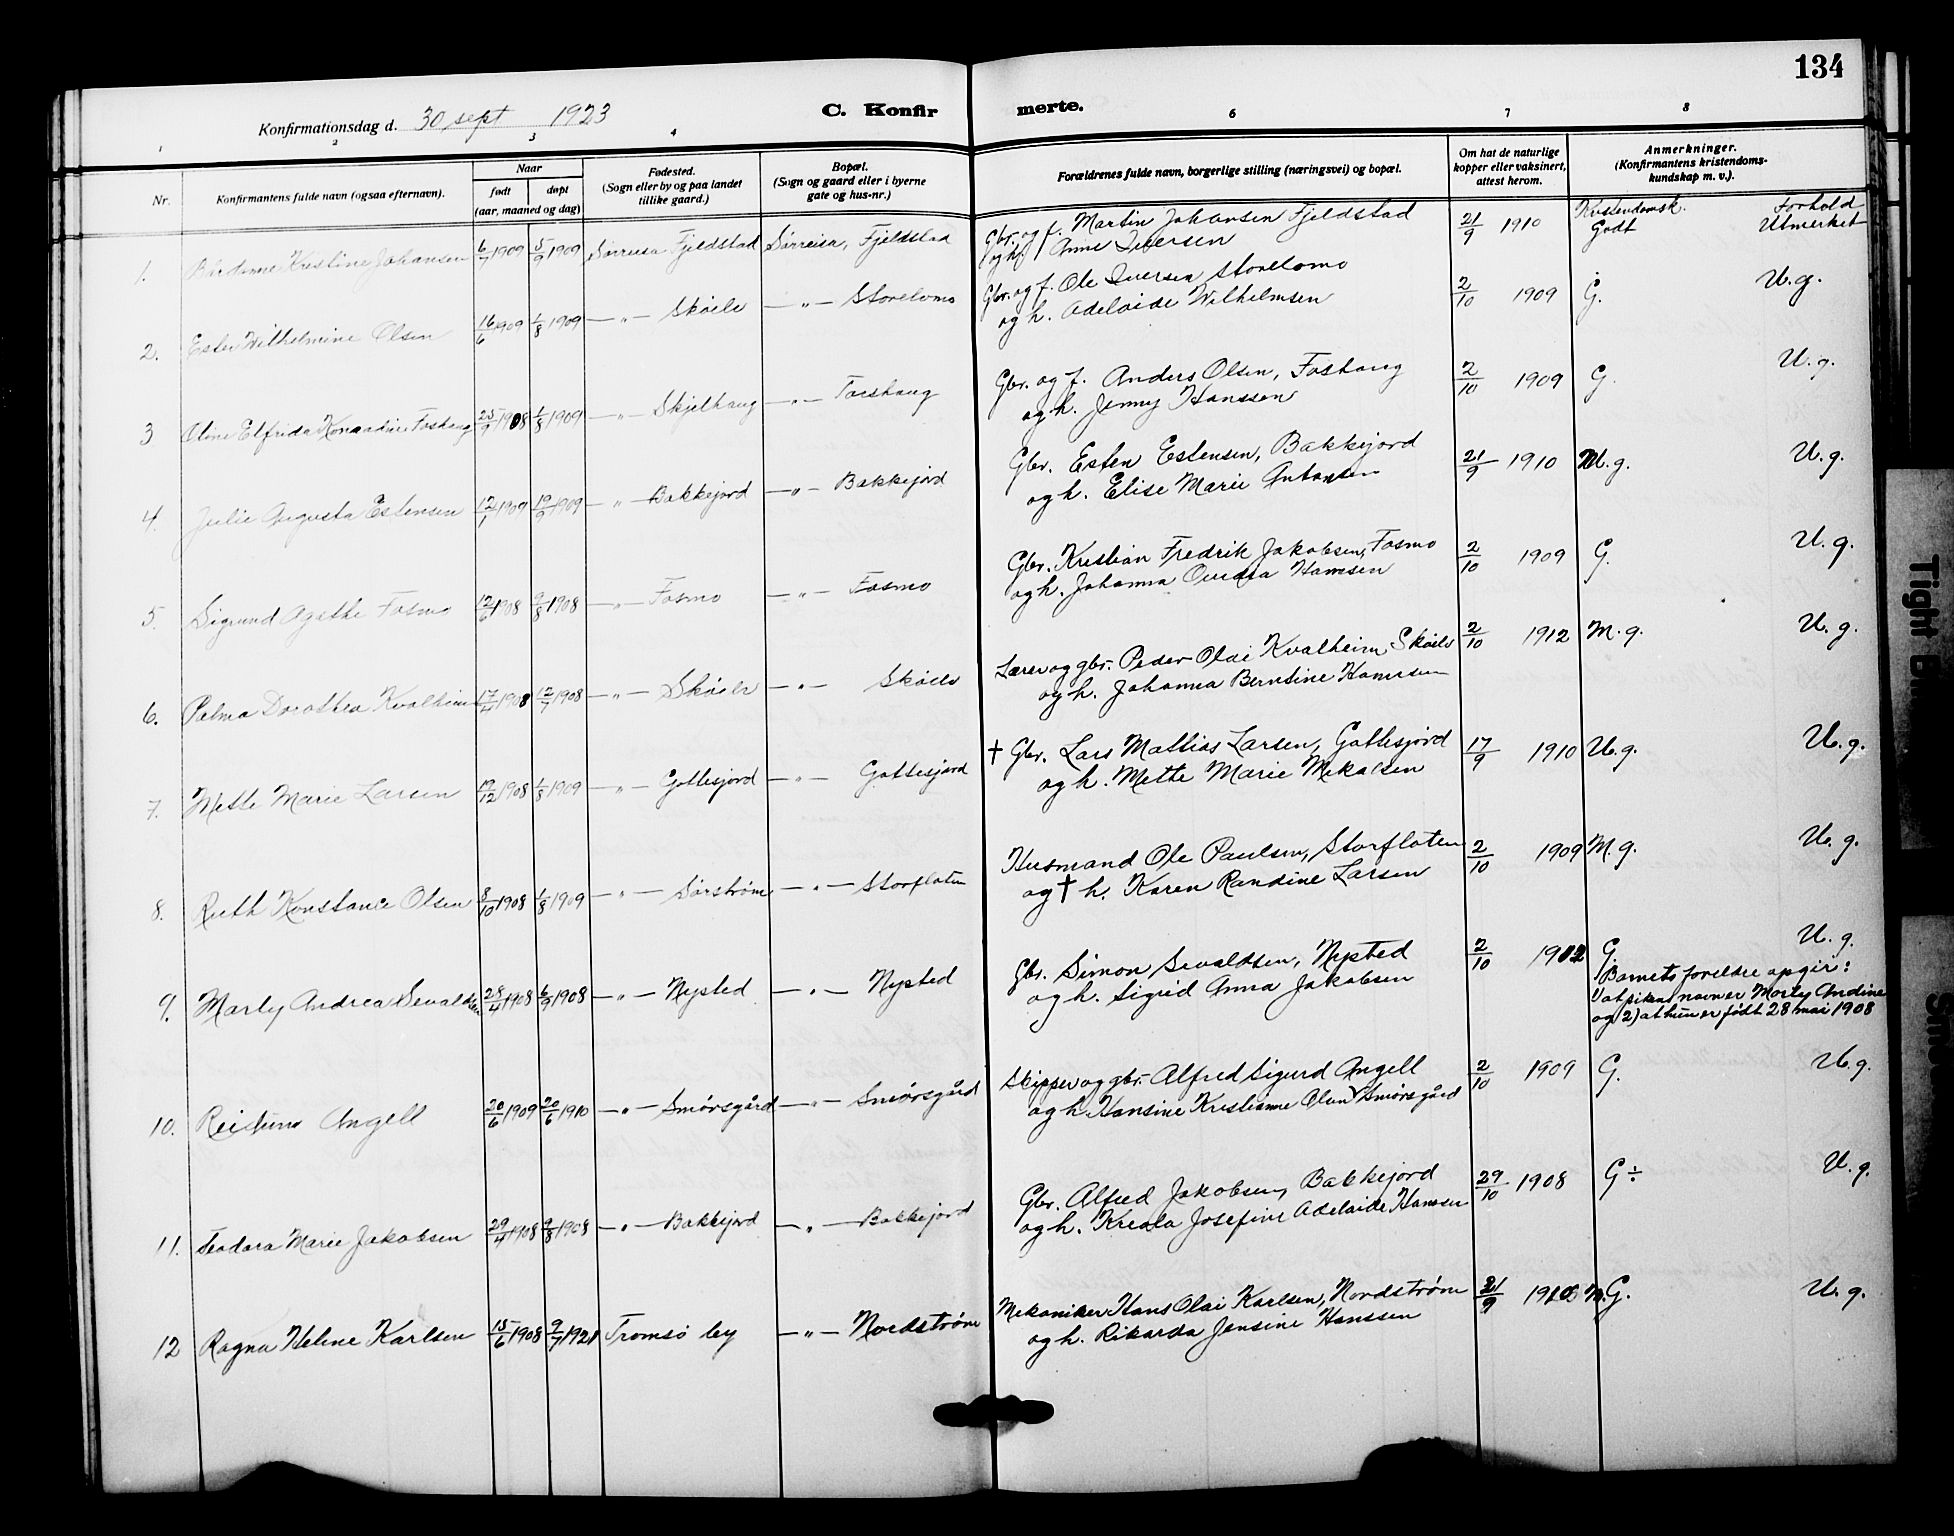 134
Konfirmationsdag d. 30 sept 1923
C. Konfir merte.
1 2 3 4 6 7 8
Nr.
Konfirmantens fulde navn (ogsaa efternavn).
Naar
født døpt
(aar, maaned og dag)
Fødested.
(Sogn eller by og paa landet
tillike gaard.)
Bopæl.
(Sogn og gaard eller i byerne
gate og hus-nr.)
Forældrenes fulde navn, borgerlige stilling (næringsvei) og bopæl.
Om hat de naturlige
kopper eller vaksinert,
attest herom.
Anmerkninger.
(Konfirmantens kristendoms-
kundskap m. v.).
Kristendomsk. Forhold
1. Kristine Johansen 6/7 1909 5/9 1909 Sørreisa Fjeldstad Sørreisa, Fjeldstad Gbr. og f. Martin Johansen Fjeldstad 21/9 1910 Godt Utmerket
og h. Anne Iversen
2. Ester Wilhelmine Olsen 16/6 1909 1/8 1909 — " — Skøelv — " — Storelvmo Gbr. og f. Ole Iversen Storelvmo 2/10 1909 G. U. g.
og h. Adelaide Wilhelmsen
3 Elfrida Foshaug 25/9 1908 1/8 1909 — " — Skjelhaug — " — Foshaug Gbr. og f. Anders Olsen, Foshaug 2/10 1909 G. U. g.
og h. Jenny Hanssen
4. Julie Augusta Estensen 12/1 1909 19/9 1909 — " — Bakkejord — " — Bakkejord Gbr. Esten Estensen, Bakkejord 21/9 1910 M. g. U. g.
og h. Elise Marie Antonsen
5. Sigrund Agathe Fosmo 12/6 1908 9/8 1908 — " — Fosmo — " — Fosmo Gbr. Kristian Fredrik Jakobsen, Fosmo 2/10 1909 G. U. g.
og h. Johanna Ovidia Hansen
6. Palma Dorothea Kvalheim 17/4 1908 12/7 1908 — " — Skøelv — " — Skøelv Lærer og gbr. Peder Olai Kvalheim Skøelv 2/10 1912 M. g. U. g.
og h. Johanna Berntine Hansen
7. Mette Marie Larsen 19/12 1908 1/8 1909 — " — Gottesjord — " — Gottesjord † Gbr. Lars Mathias Larsen, Gottesjord 17/9 1910 U. g. U. g.
og h. Mette Marie Mikalsen
8. Ruth Konstance Olsen 8/10 1908 1/8 1909 — " — Sørstrøm — " — Storfloten Husmand Ole Paulsen, Storfloten 2/10 1909 M. g. U. g.
og † h. Karen Randine Larsen
9. Marly Andrea Sevaldsen 28/4 1908 6/9 1908 — " — Nysted — " — Nysted Gbr. Simon Sevaldsen, Nysted 2/10 1912 G. U. g.
og h. Sigrid Anna Jakobsen
Barnets foreldre opgir:
1) at pikens navn er Marly Andine
og 2) at hun er født 28 mai 1908
10. Reidunn Angell 20/6 1909 20/6 1910 — " — Smørsgård — " — Smørsgård Skipper og gbr. Alfred Sigurd Angell 2/10 1909 G. U. g.
og h. Hansine Kristianne Olsen, Smørsgård
11. Teodora Marie Jakobsen 29/4 1908 9/8 1908 — " — Bakkejord — " — Bakkejord Gbr. Alfred Jakobsen, Bakkejord 29/10 1908 G ÷ U. g.
og h. Josefine Adelaide Hanssen
12 Ragna Helene Karlsen 15/6 1908 9/7 1921 Tromsø by — " — Nordstrøm Mekaniker Hans Olai Karlsen, Nordstrøm 21/9 M. G. U. g.
og h. Rikarda Jensine Hanssen
Tight